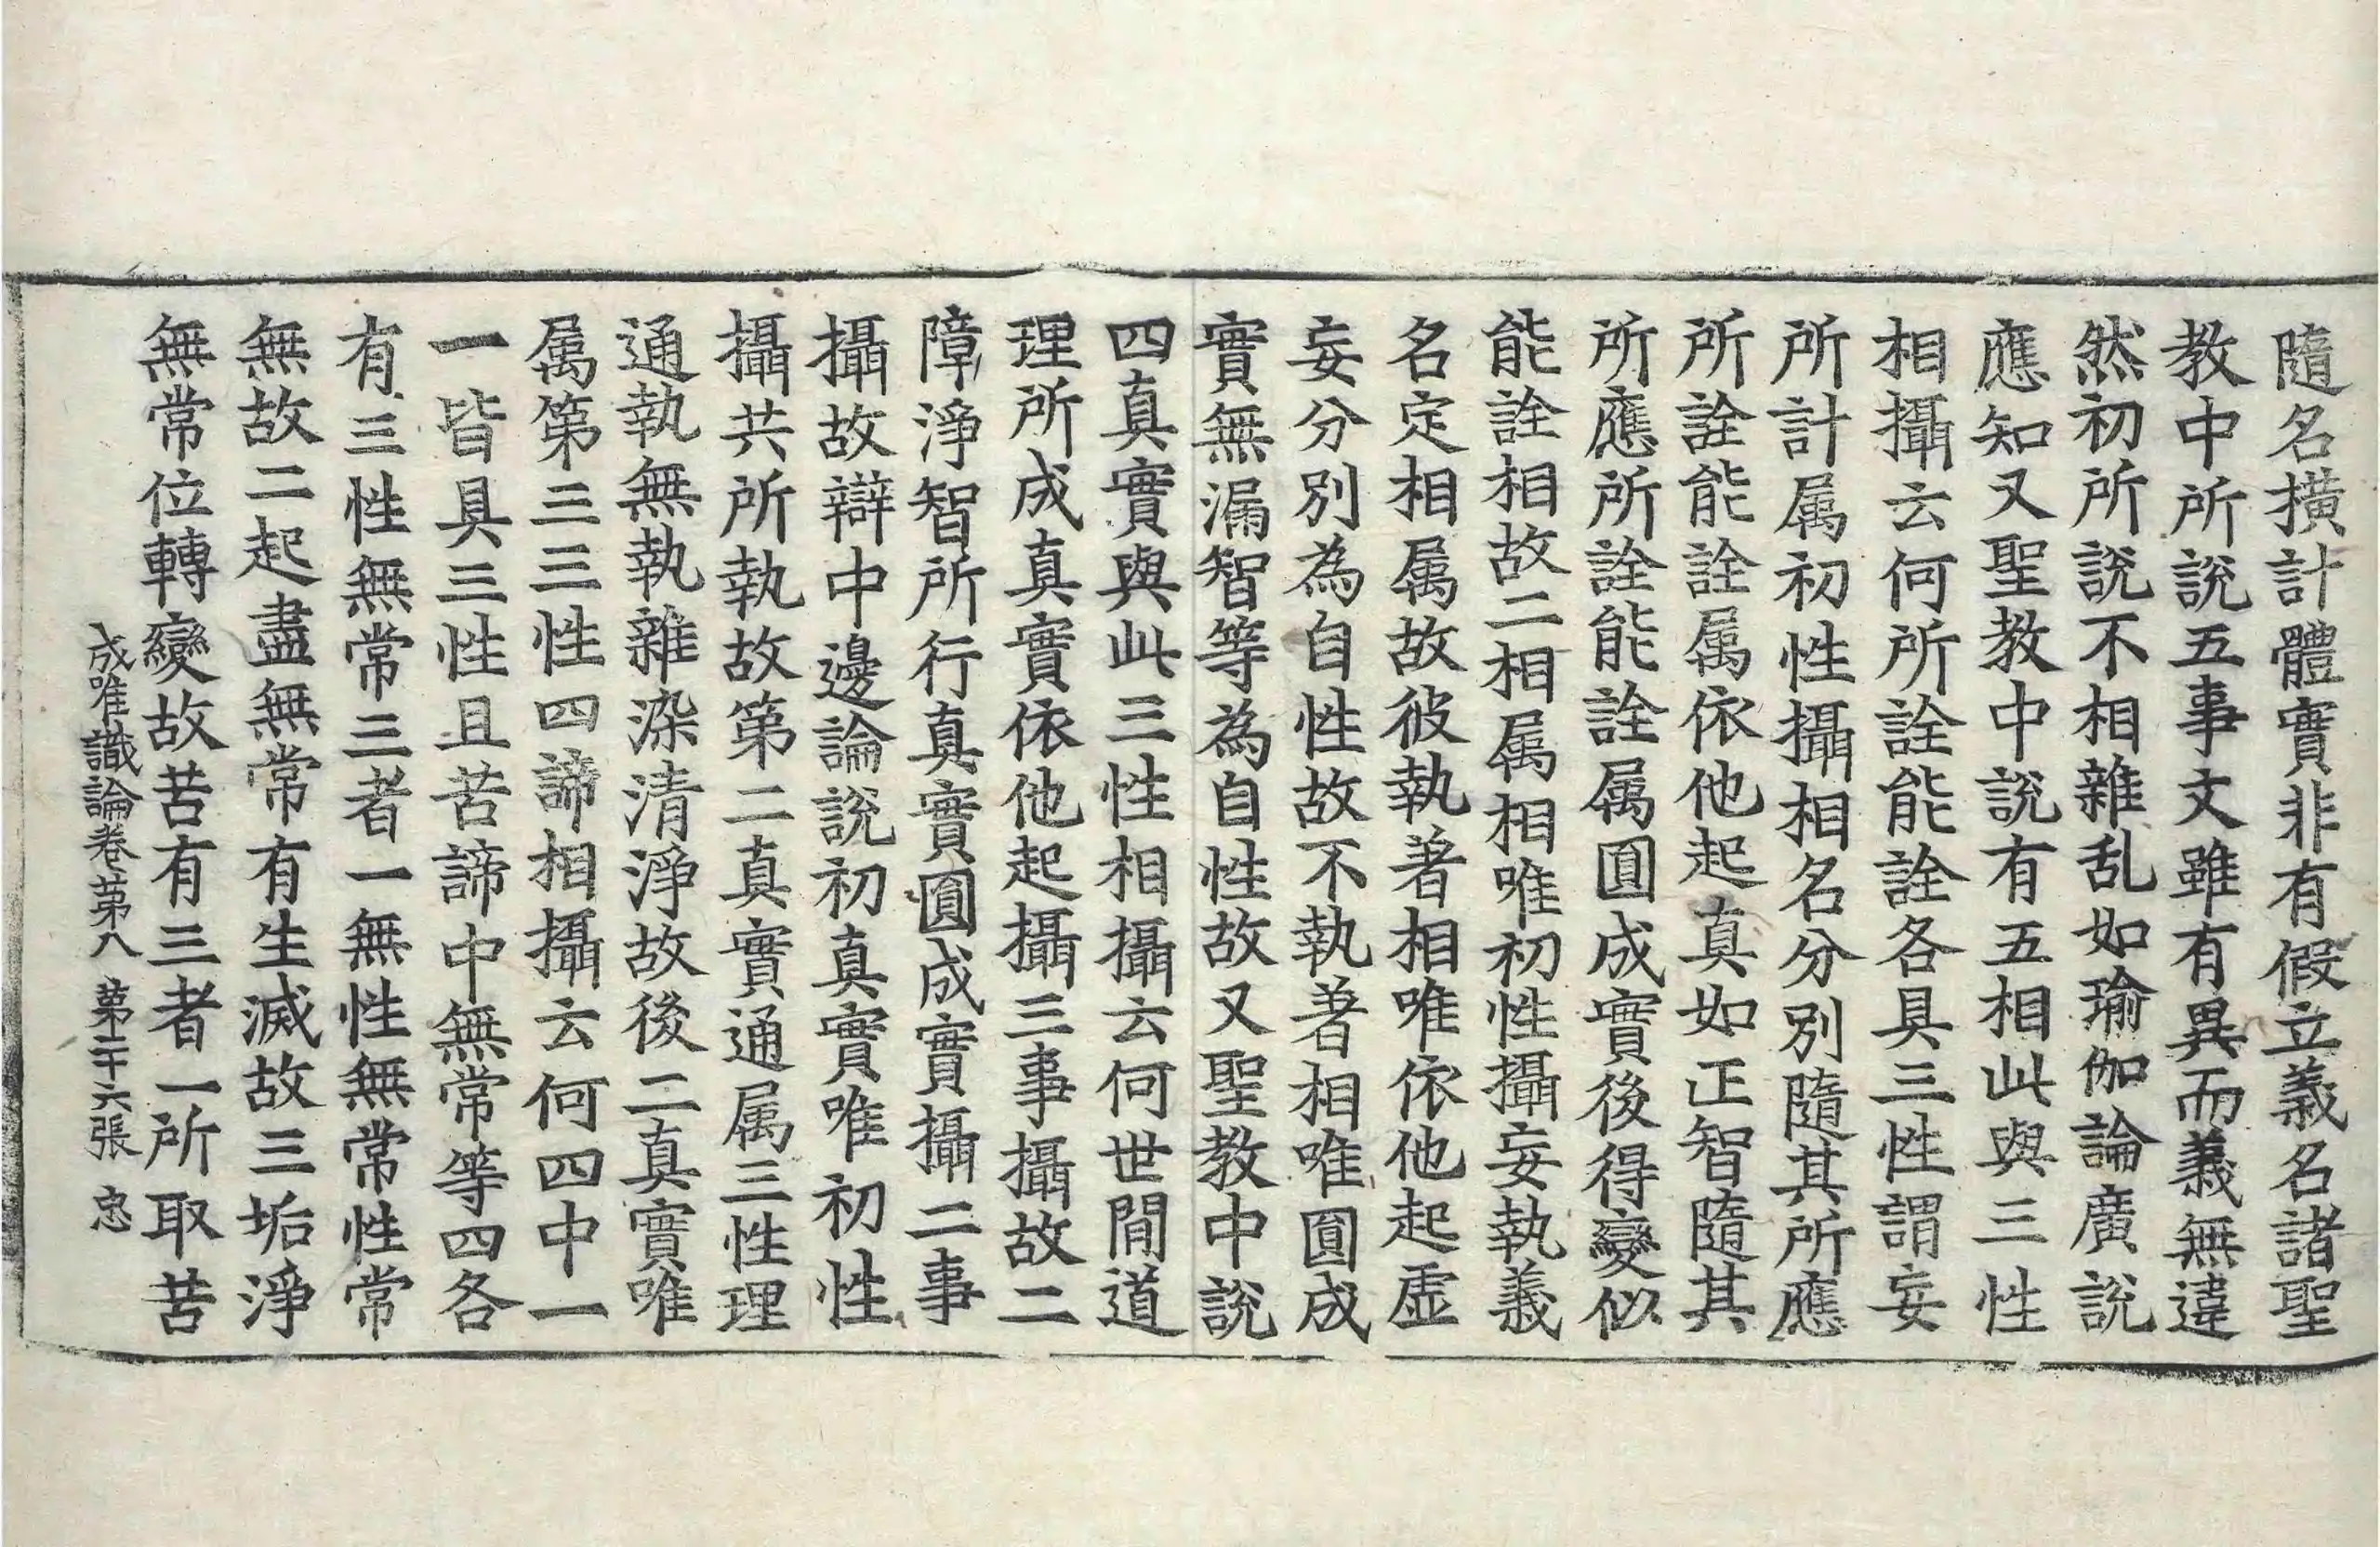 隨名撗計體實非有假立義名諸聖
教中所說五事文雖有異而義無違
然初所說不相雜乱如瑜伽論廣說
應知又聖教中說有五相此與三性
相攝云何所詮能詮各具三性謂妄
所計属初性攝相名分別隨其所應
所詮能詮属依他起真如正智隨其
所應所詮能詮属圓成實後得變似
能詮相故二相属相唯初性攝妄執義
名定相属故彼執著相唯依他起虛
妄分別為自性故不執著相唯圓成
實無漏智等為自性故又聖教中說
四真實與此三性相攝云何世間道
理所成真實依他起攝三事攝故二
障淨智所行真實圓成實攝二事
攝故辯中邊論說初真實唯初性
攝共所執故第二真實通属三性理
通執無執雜染清淨故後二真實唯
属第三三性四諦相攝云何四中一
一皆具三性且苦諦中無常等四各
有三性無常三者一無性無常性常
無故二起盡無常有生滅故三垢淨
無常位轉變故苦有三者一所取苦
成唯識論卷第八 第二十六張 忠